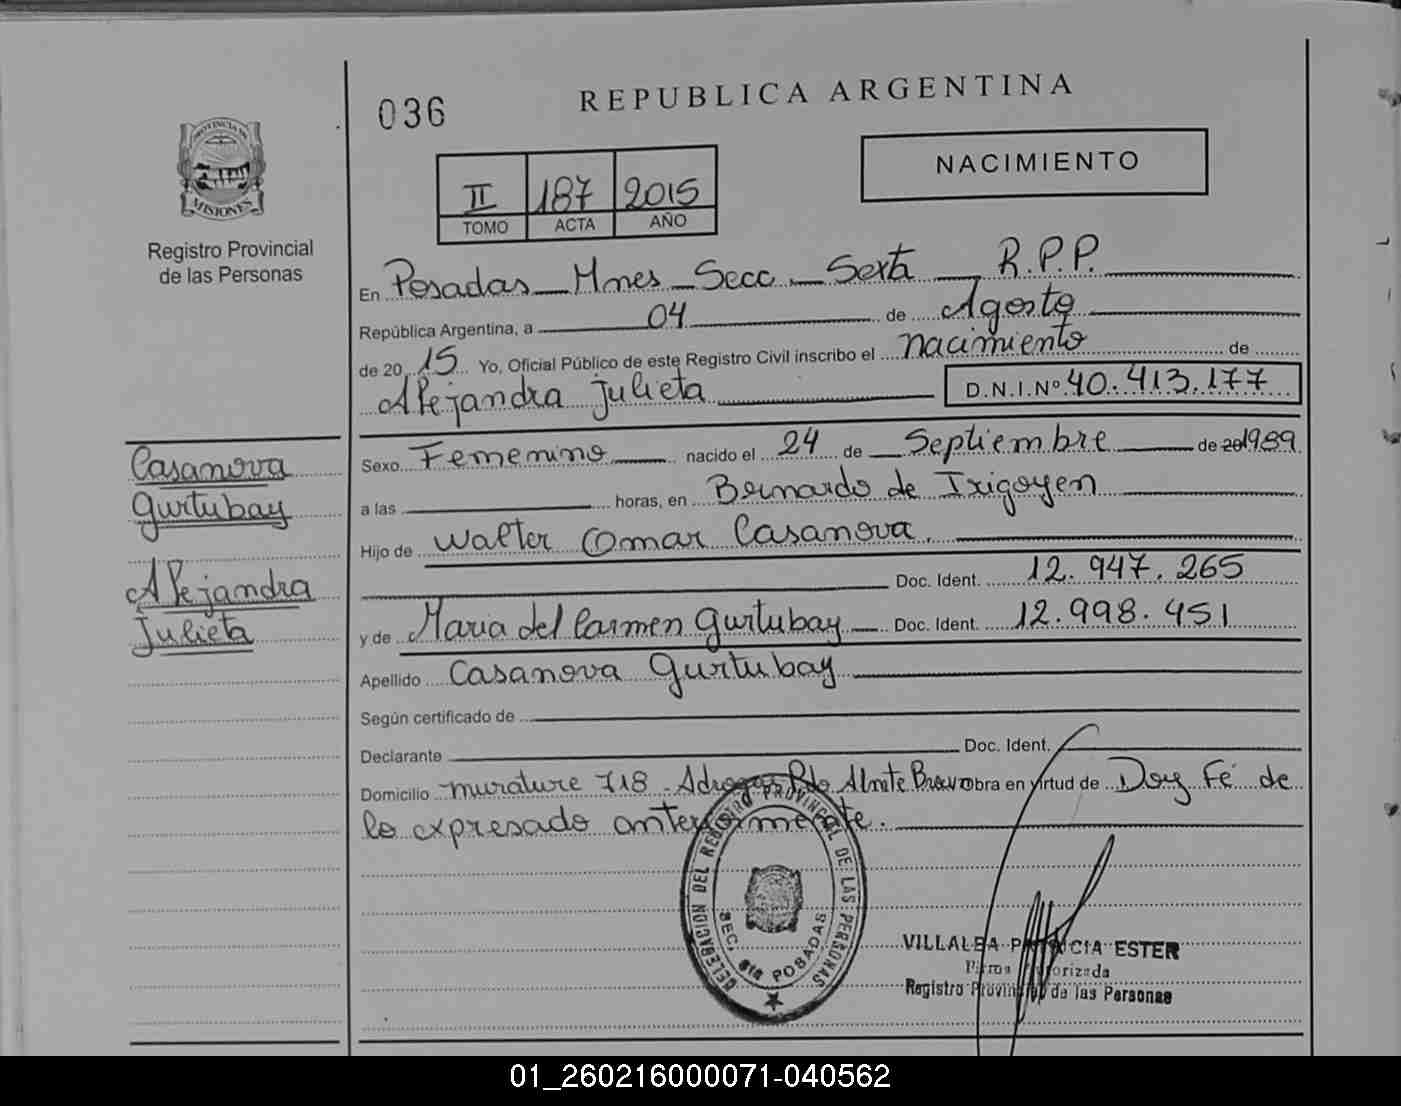 036
REPUBLICA ARGENTINA
PROVINCIA DE
MISIONES
Registro Provincial
de las Personas
II 187 2015
TOMO ACTA AÑO
NACIMIENTO
En Posadas Mnes Secc Sexta R.P.P.
República Argentina, a 04 de Agosto
de 20 15 Yo, Oficial Público de este Registro Civil inscribo el nacimiento de
Alejandra Julieta D.N.I.Nº 40.413.177
Casanova
Gurtubay
Alejandra
Julieta
Sexo Femenino nacido el 24 de Septiembre de 20 1989
a las horas, en Bernardo de Irigoyen
Hijo de Walter Omar Casanova
Doc. Ident. 12.947.265
y de Maria del Carmen Gurtubay Doc. Ident. 12.998.451
Apellido Casanova Gurtubay
Según certificado de
Declarante Doc. Ident.
Domicilio murature 718 Adrogue Almte Brown obra en virtud de Doy Fé de
lo expresado anteriormente.
DELEGACION DEL REGISTRO PROVINCIAL DE LAS PERSONAS
SEC. 6ta POSADAS
VILLALBA PATRICIA ESTER
Firma Autorizada
Registro Provincial de las Personas
01_260216000071-040562